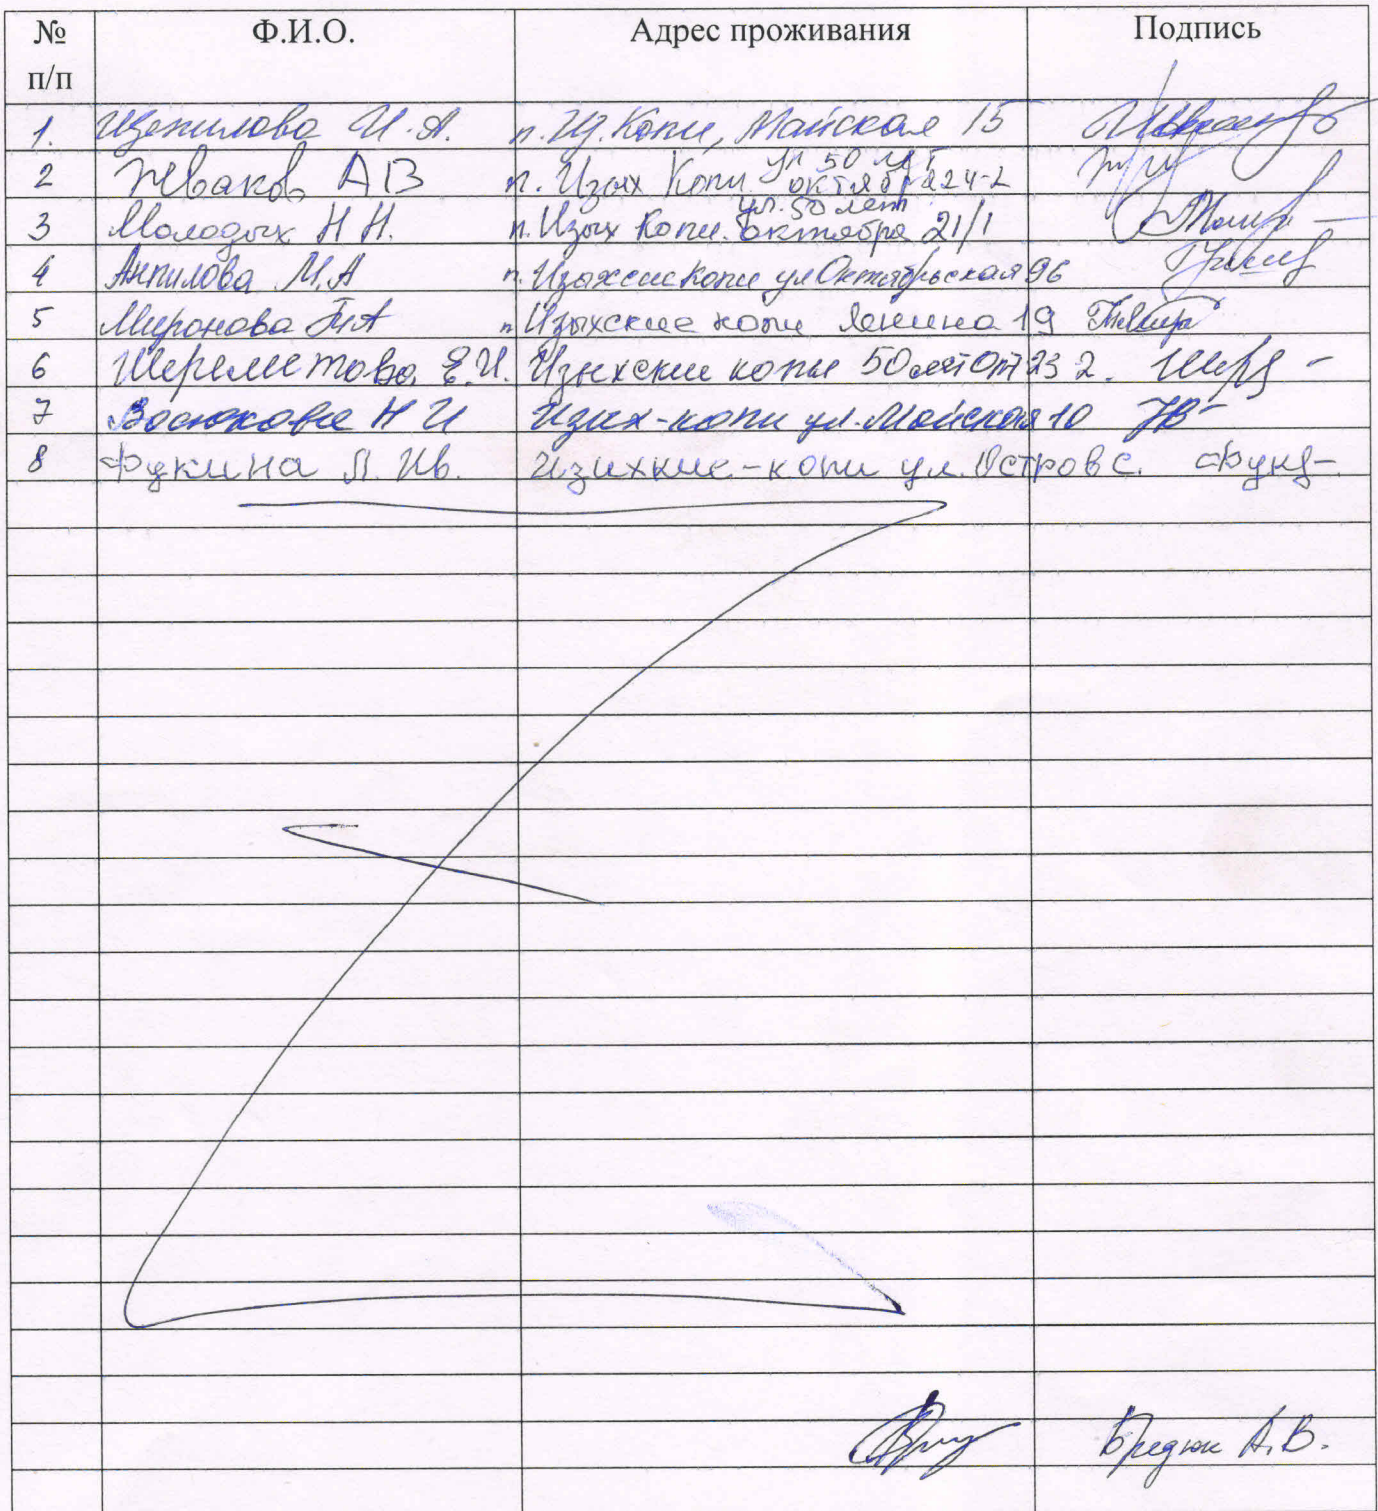 № п/п Ф.И.О. Адрес проживания Подпись
1. Щепилова И.А. п. Из. Копи, Майская 15
2 Жваков АВ п. Изых Копи ул 50 лет октября 24-2
3 Молодых Н Н. п. Изых Копи. ул. 50 лет октября 21/1
4 Анпилова М.А п. Изыхские копи ул Октябрьская 96
5 Миронова Т.А п Изыхские копи Ленина 19
6 Шереметова Е.И. Изыхские копи 50 лет Окт 23 2.
7 Восюкова Н И Изых-копи ул. Майская 10
8 Фукина Л. Ив. Изихкие-копи ул. Островс.
Бредюк А.В.